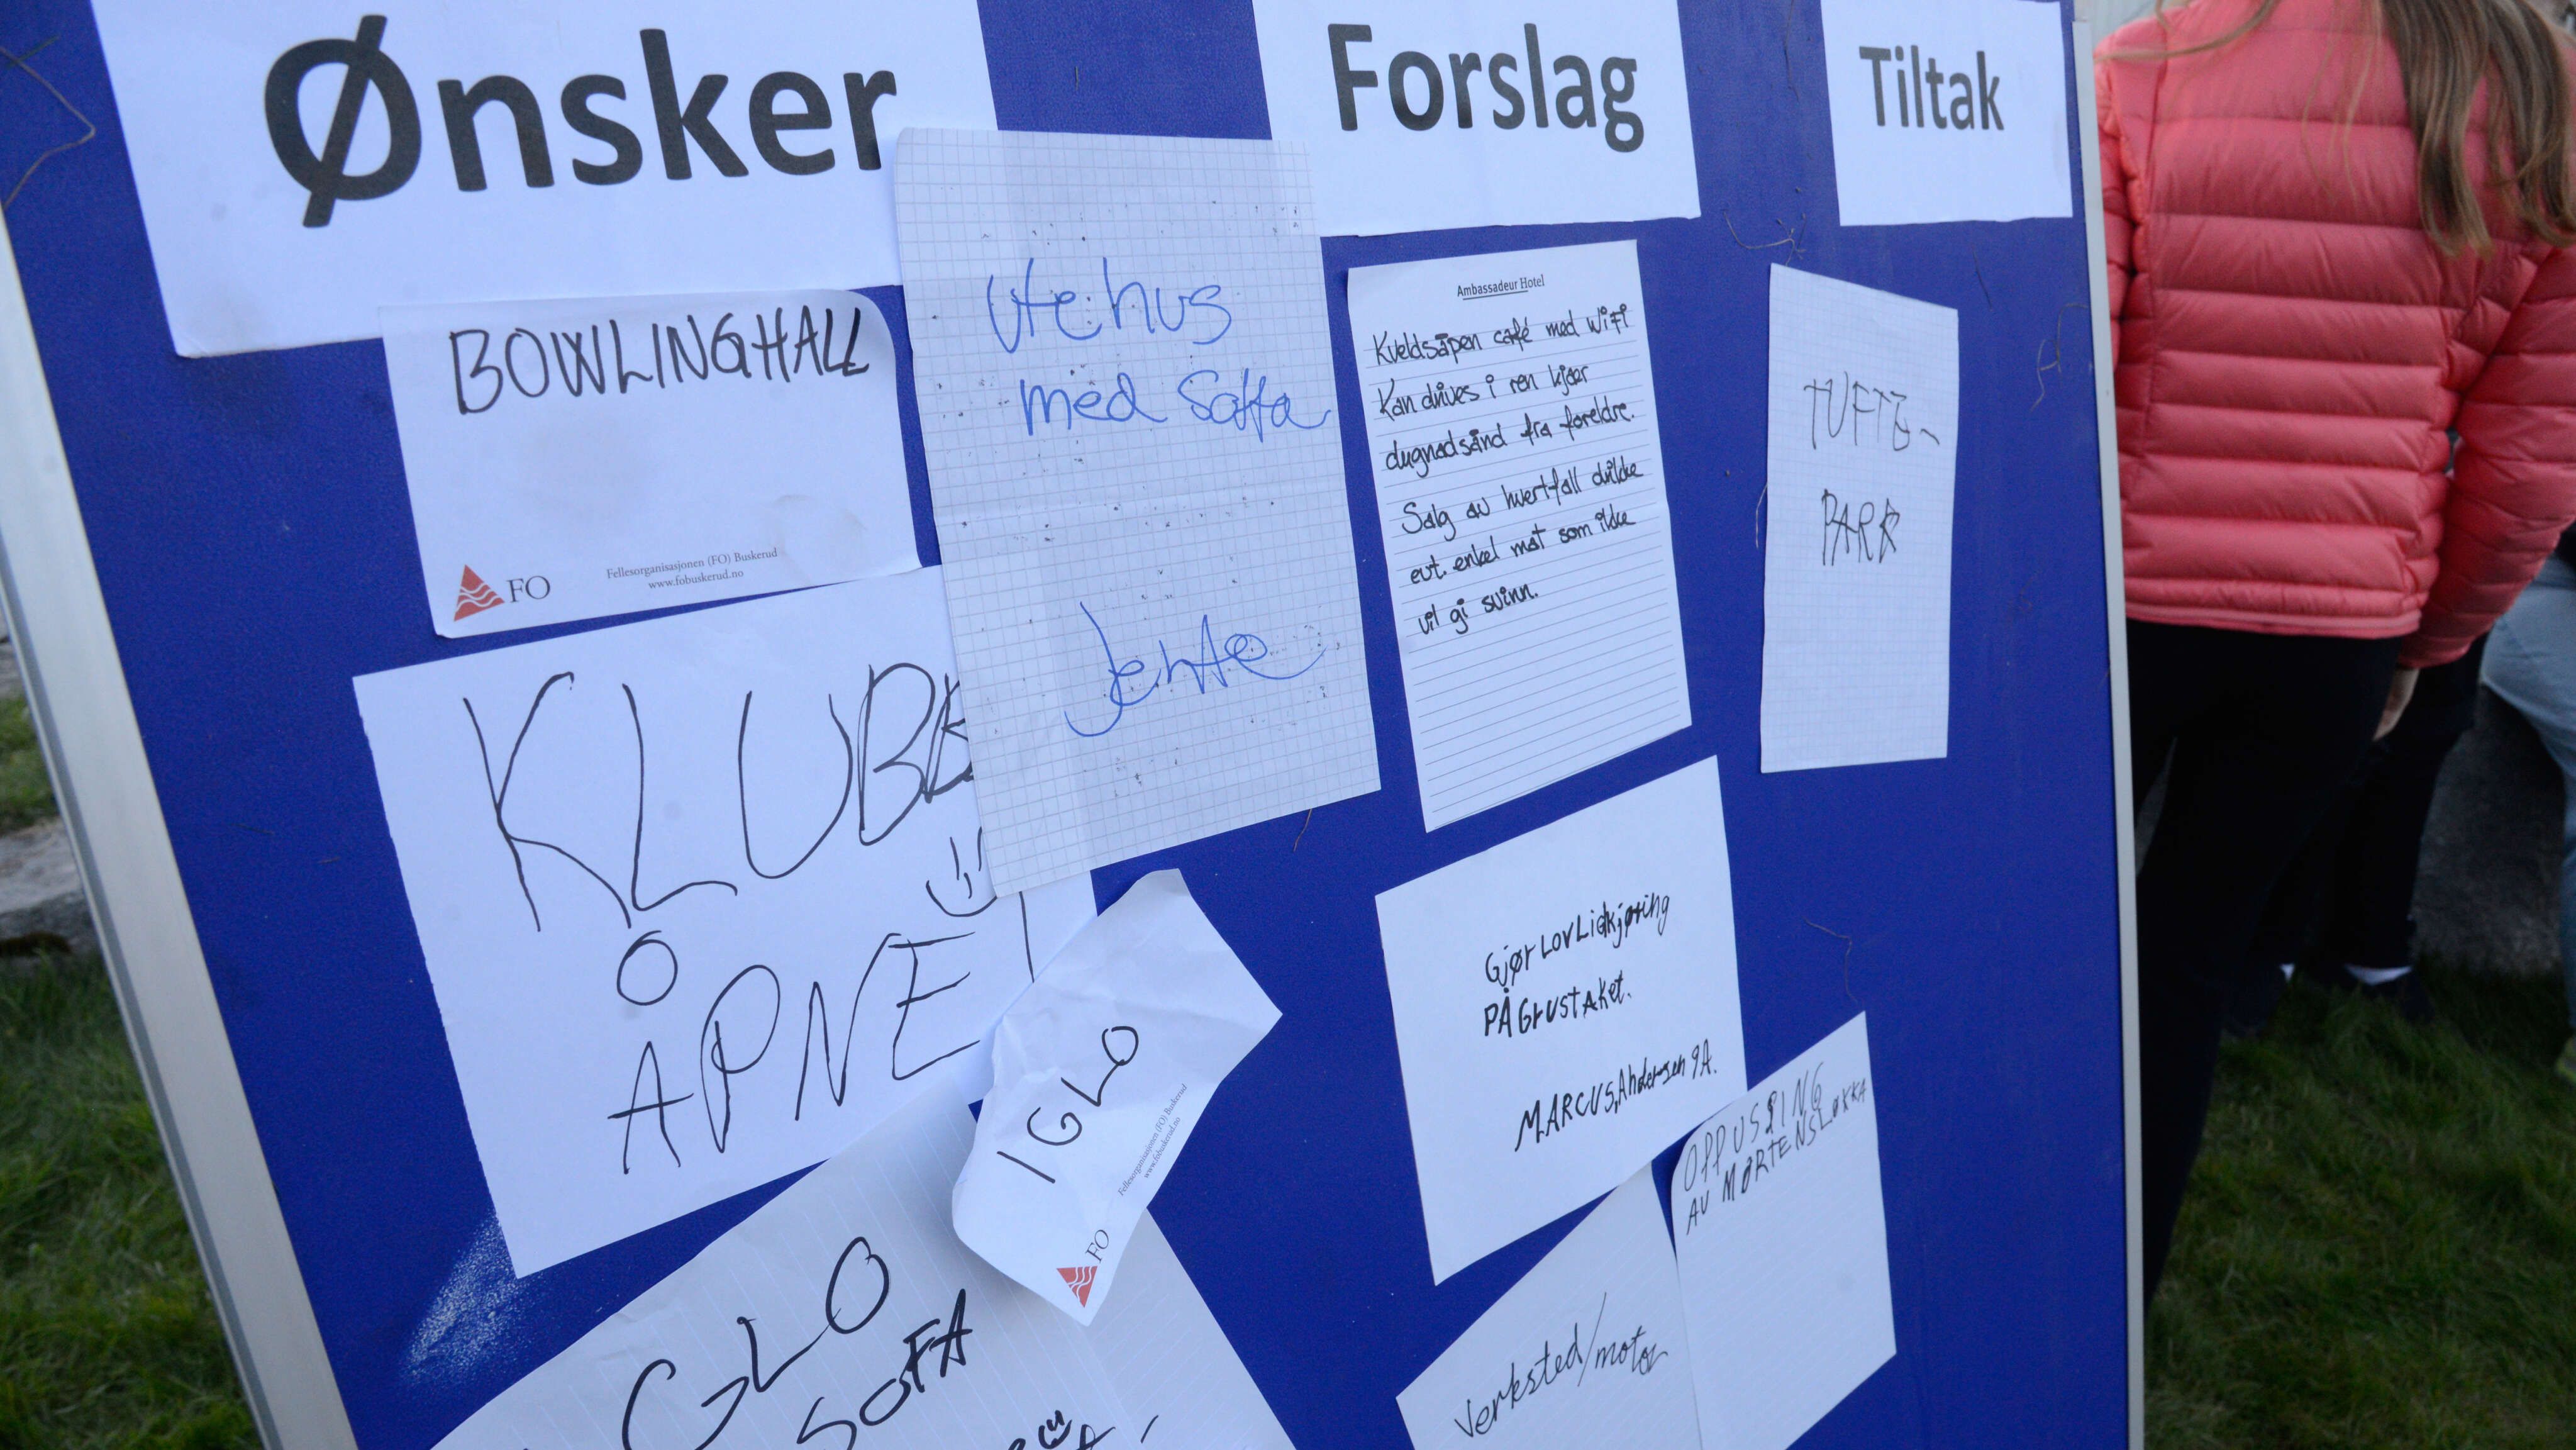 Ønsker
Forslag
Tiltak
BOWLINGHALL
FO
Fellesorganisasjonen (FO) Buskerud
www.fobuskerud.no
Utehus
med Soffa
Jente
KLUBB
ÅPNE
IGLO
Fellesorganisasjonen (FO) Buskerud
www.fobuskerud.no
FO
GLO
SOFA
Ambassadeur Hotel
Kveldsåpen café med WiFi
Kan drives i ren kjær
dugnadsånd fra foreldre.
Salg av hvertfall drikke
evt. enkel mat som ikke
vil gi svinn.
Gjør Lovlig kjøring
PÅ Grustaket.
MARCUS, Andersen 9A.
Verksted/motor
OPPUSSING
AV MORTENSLØKKA
TUFTE-
PARK